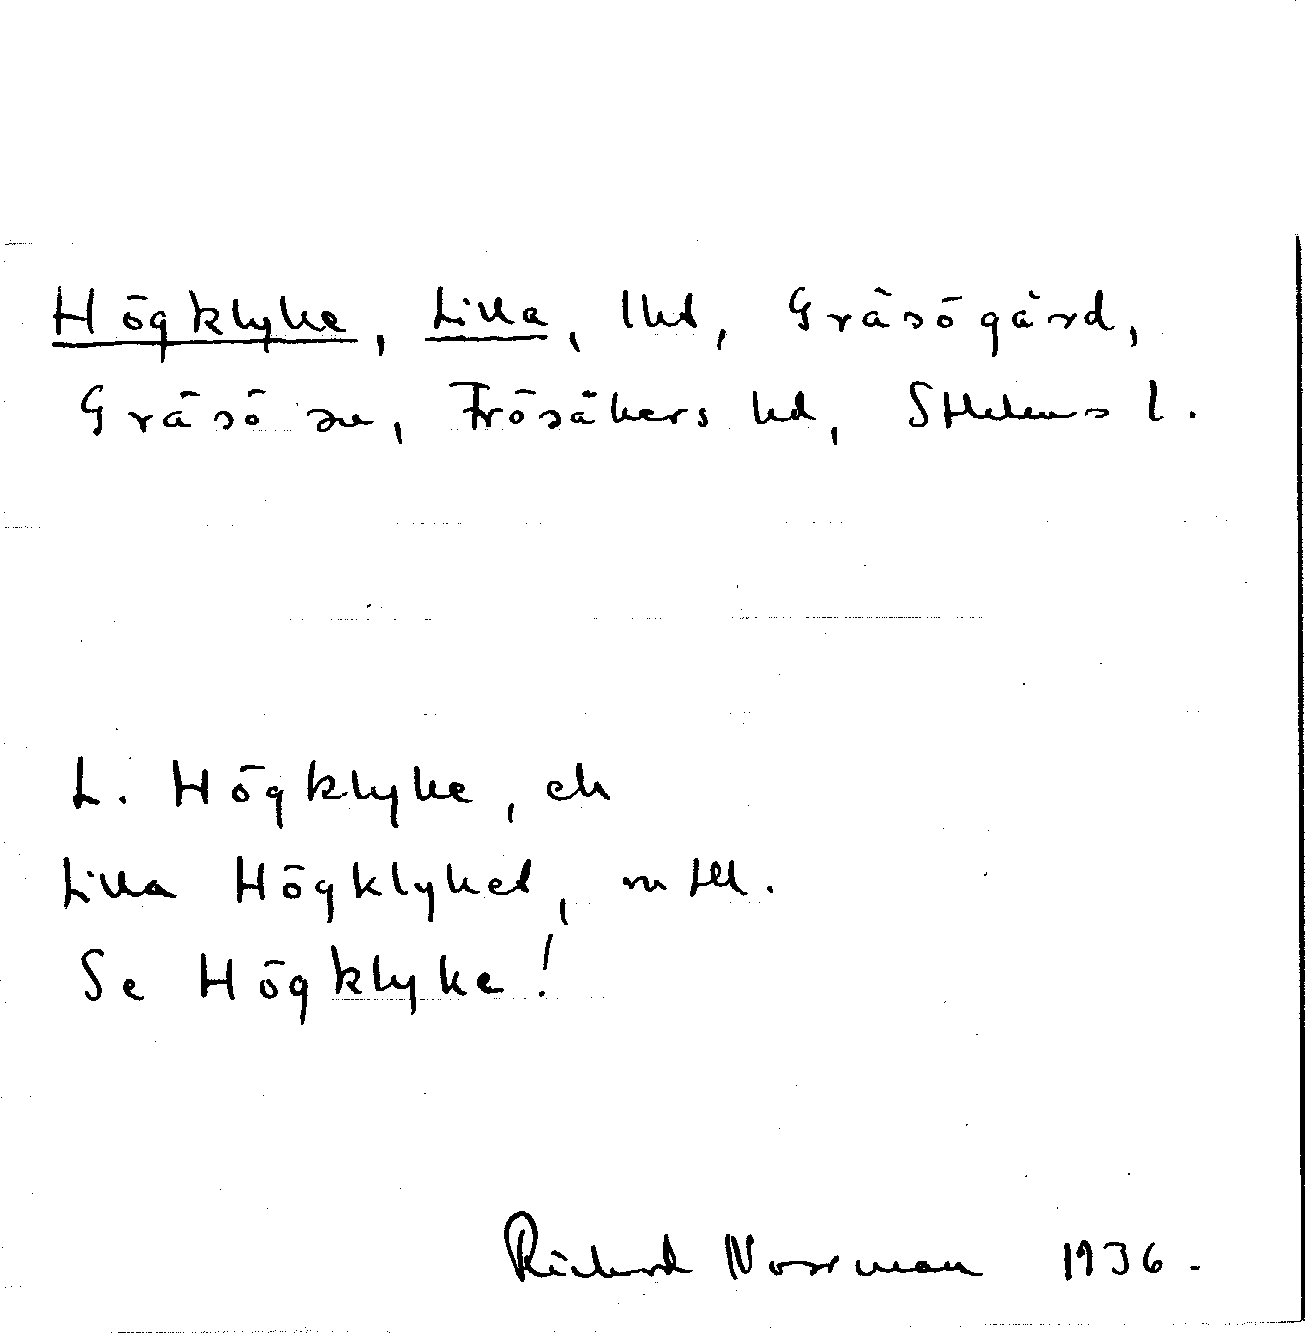 Högklyke, Lilla, lhd, Gräsögård,
Gräsö sn, Frösåkers hd, Sthlms l.
L. Högklyke, ek
Lilla Högklyket, mtll.
Se Högklyke!
Richard Norrman 1936.